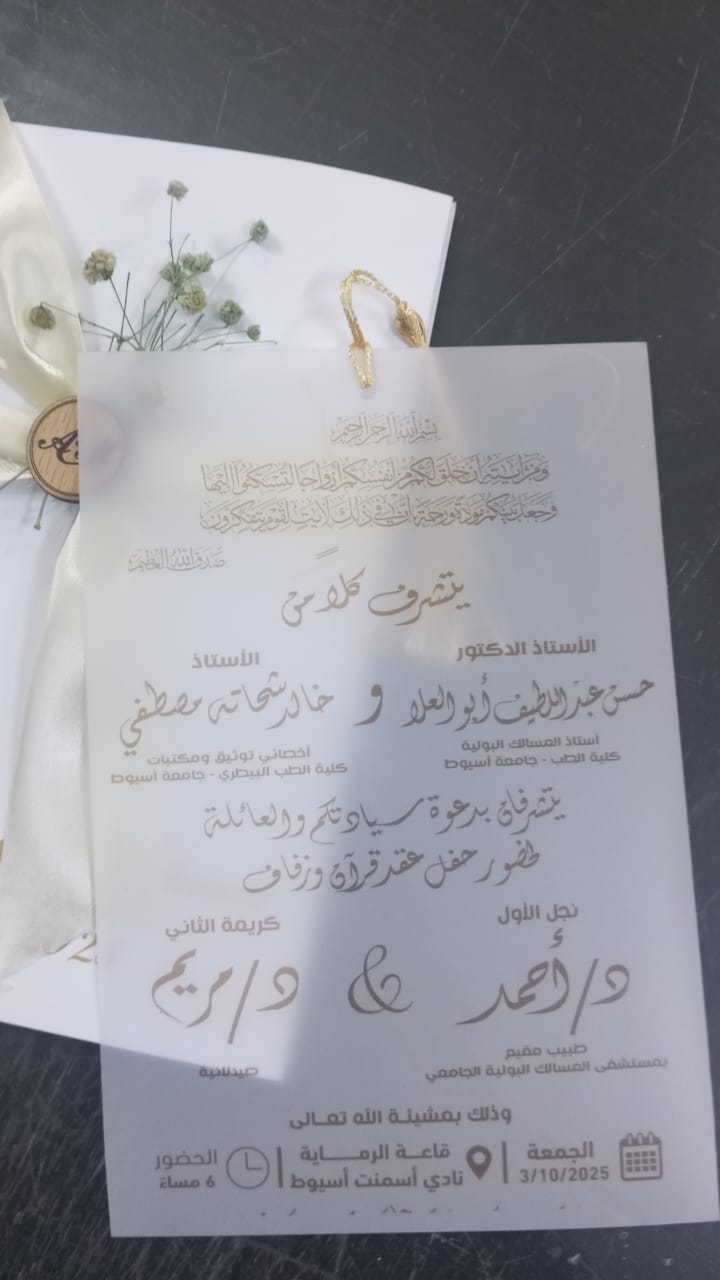 بسم الله الرحمن الرحيم
ومن آياته أن خلق لكم من أنفسكم أزواجا لتسكنوا إليها
وجعل بينكم مودة ورحمة إن في ذلك لآيات لقوم يتفكرون
صدق الله العظيم
يتشرف كلا من
الأستاذ الدكتور
الأستاذ
حسن عبد اللطيف أبو العلا و خالد شحاته مصطفي
أستاذ المسالك البولية
أخصائي توثيق ومكتبات
كلية الطب - جامعة أسيوط
كلية الطب البيطري - جامعة أسيوط
يتشرفان بدعوة سيادتكم والعائلة
لحضور حفل عقد قرآن وزفاف
نجل الأول
كريمة الثاني
د/أحمد & د/مريم
طبيب مقيم
بمستشفى المسالك البولية الجامعي
صيدلانية
وذلك بمشيئة الله تعالى
الجمعة
3/10/2025
قاعة الرماية
نادي أسمنت أسيوط
الحضور
6 مساءً